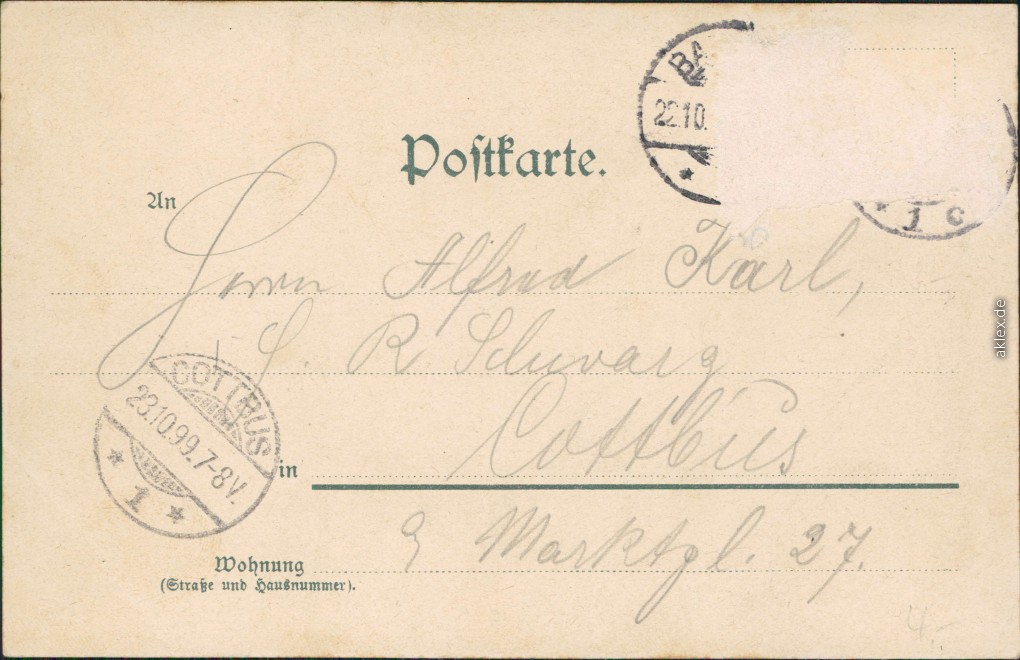 BA
22.10.
1 C
Postkarte.
An
Herrn Alfred Karl,
R. Schwarz
COTTBUS
23.10.99.7-8V.
1
in Cottbus
Marktpl. 27.
Wohnung
(Straße und Hausnummer).
4.-
aklex.de